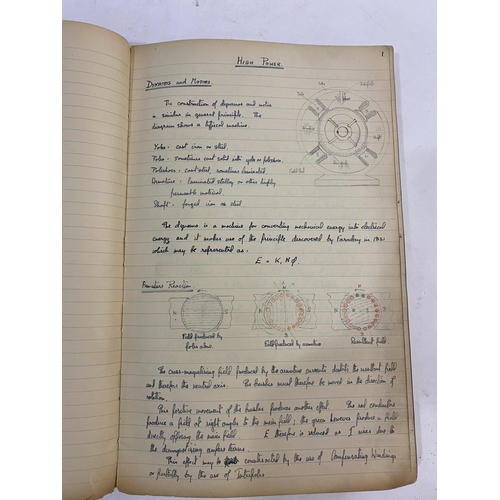 1
HIGH POWER.
DYNAMOS AND MOTORS.
The construction of dynamos and motors
is similar in general principle. The
diagram shows a bifocal machine.
Yoke - cast iron or steel.
Poles - sometimes cast solid with yoke or poleshoes.
Poleshoes - cast steel, sometimes laminated.
Armature - laminated stalloy or other highly
permeable material.
Shaft - forged iron or steel.
Yoke
The dynamo is a machine for converting mechanical energy into electrical
energy and it makes use of the principle discovered by Faraday in 1831
which may be represented as:
E = K, N φ.
Armature Reaction
N
S
Field produced by
poles alone.
Field produced by armature
Resultant field.
The cross-magnetising field produced by the armature currents distorts the resultant field
and therefore the neutral axis. The brushes must therefore be moved in the direction of
rotation.
This forative movement of the brushes produces another effect. The red conductors
produce a field at right angles to the main field; the green however produce a field
directly opposing the main field. E therefore is reduced as I rises due to
the demagnetising ampere turns.
This effect may be counteracted by the use of Compensating Windings
or partially by the use of Interpoles